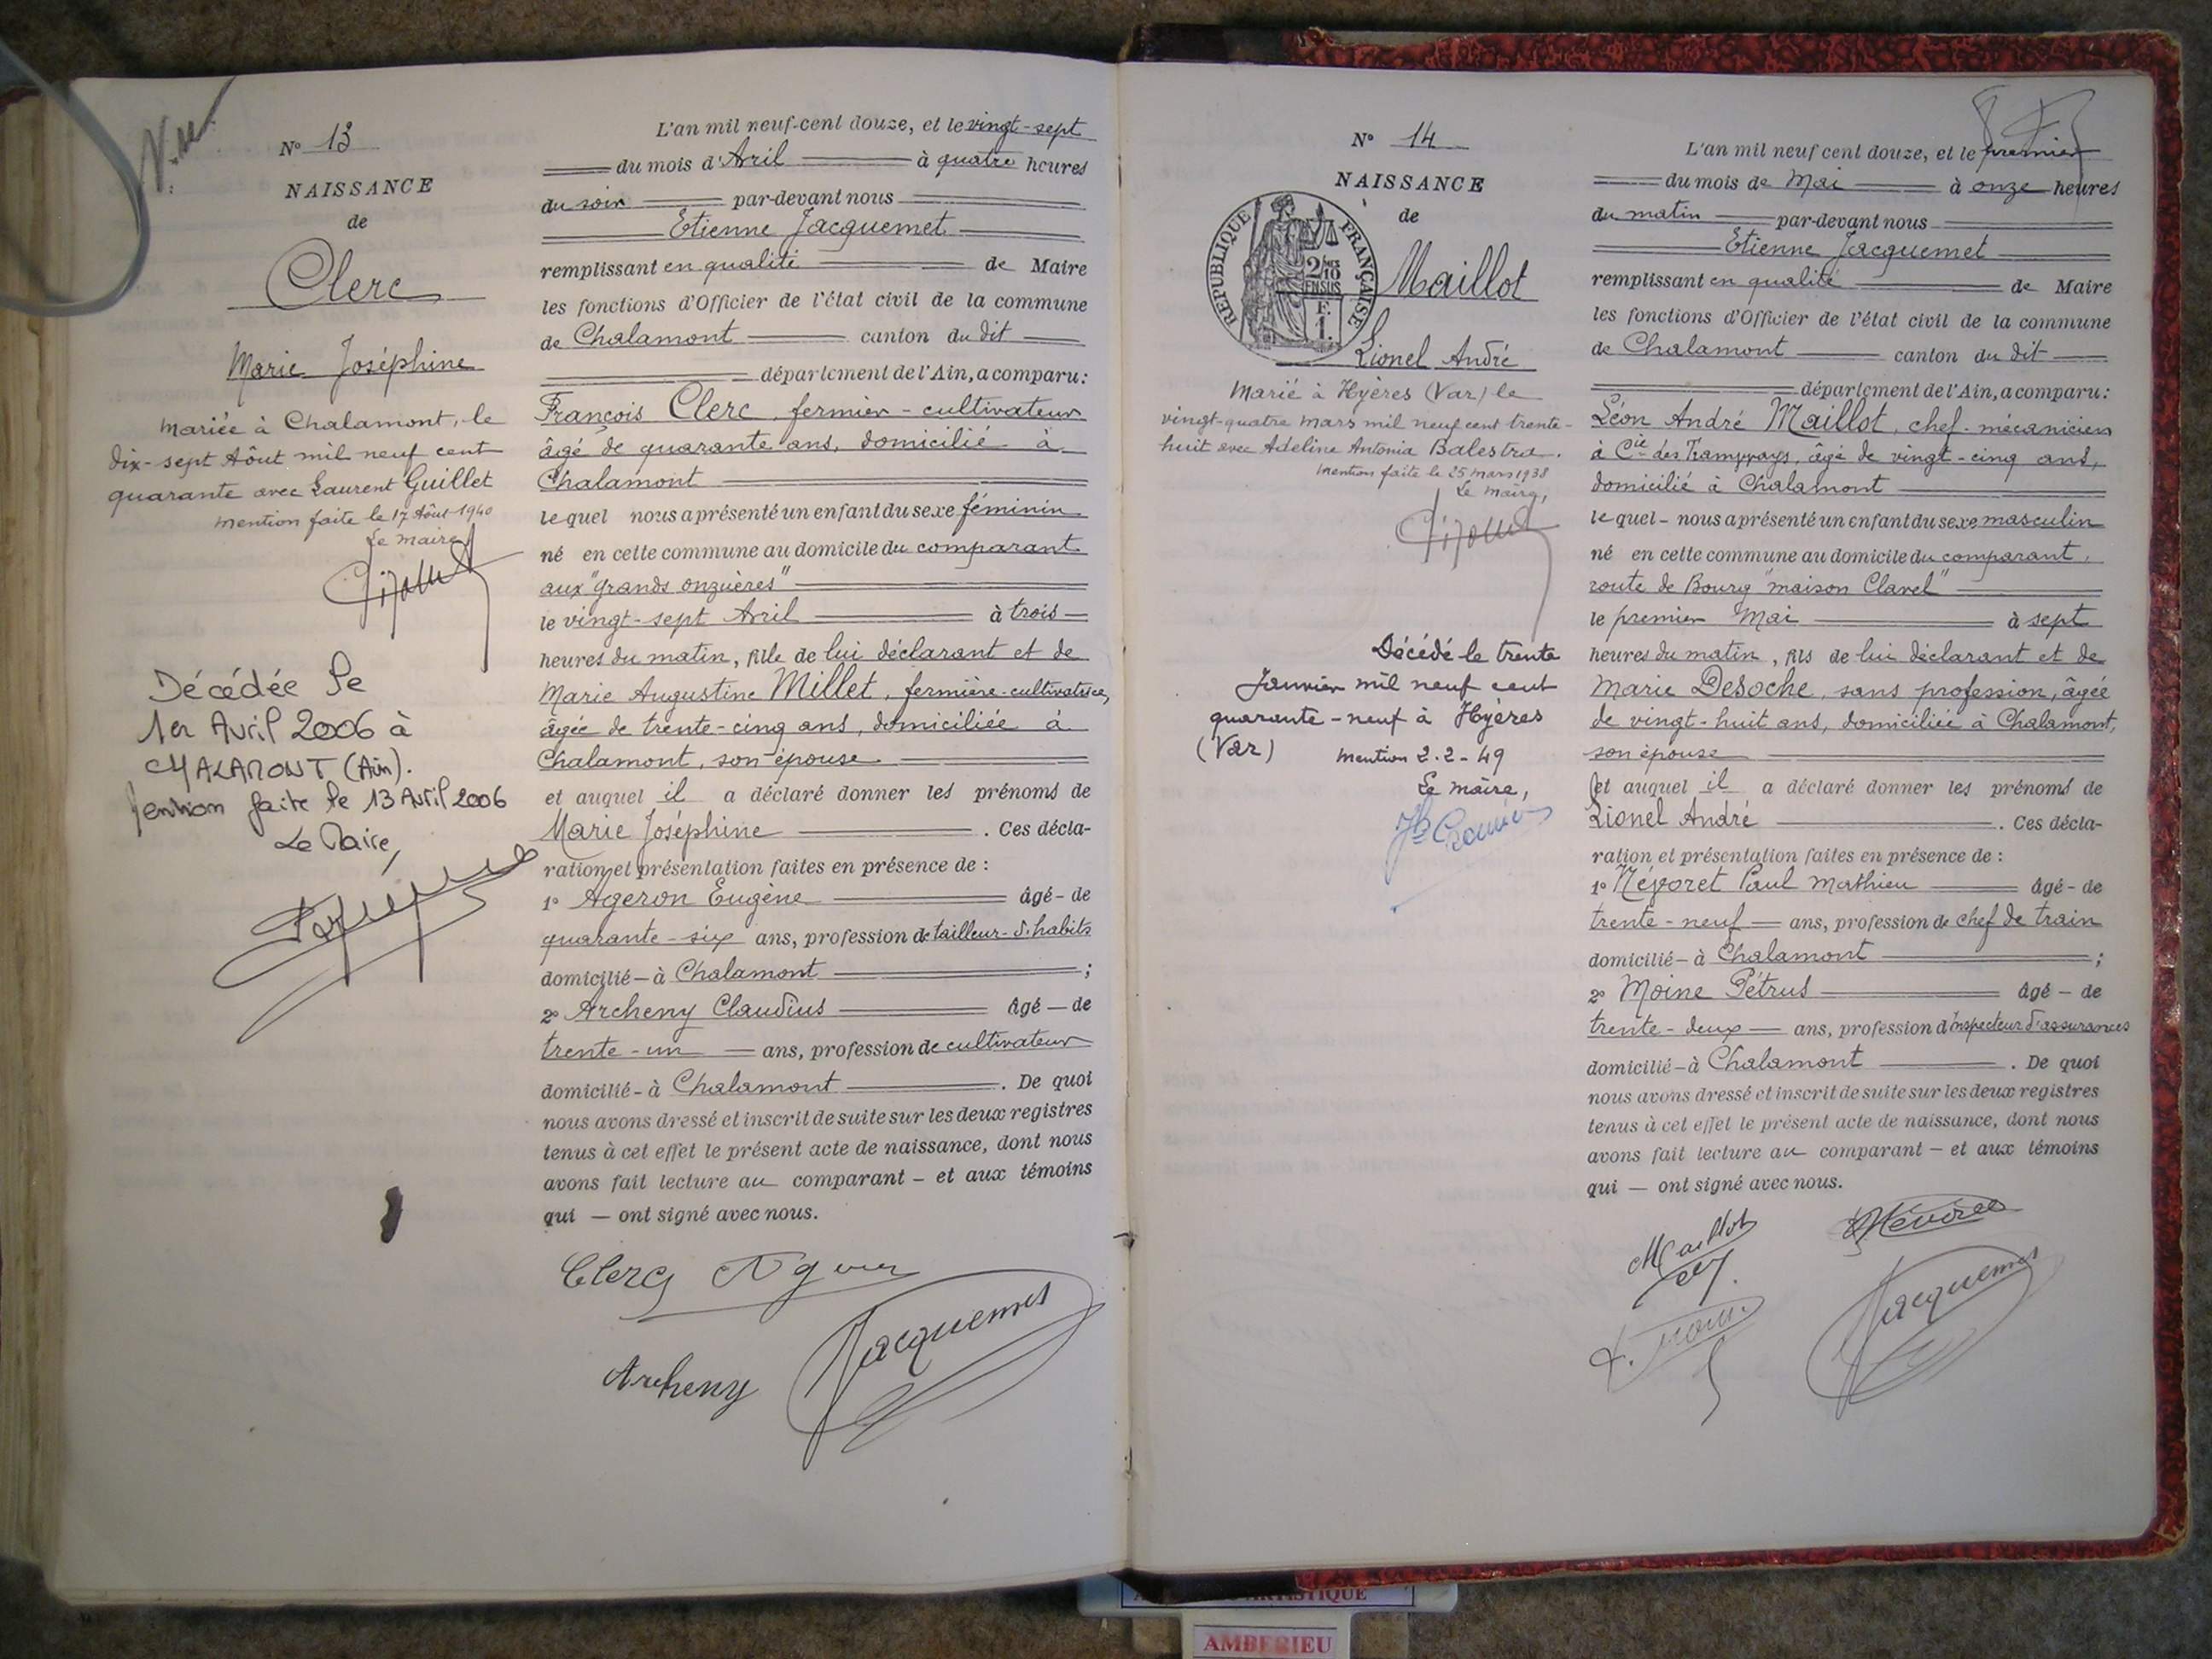 Vu
N° 13
NAISSANCE
de
Clerc
Marie Joséphine
Mariée à Chalamont, le
dix-sept Aôut mil neuf cent
quarante avec Laurent Guillet
Mention faite le 17 Aôut 1940
Le maire,
Décédée le
1er Avril 2006 à
CHALAMONT (Ain).
Mention faite le 13 Avril 2006
Le Maire,
L'an mil neuf-cent douze, et le vingt-sept
du mois d'Avril à quatre heures
du soir par-devant nous
Etienne Jacquemet
remplissant en qualité de Maire
les fonctions d'Officier de l'état civil de la commune
de Chalamont canton du dit
département de l'Ain, a comparu:
François Clerc, fermier-cultivateur
âgé de quarante ans, domicilié à
Chalamont
le quel nous a présenté un enfant du sexe féminin
né en cette commune au domicile du comparant
aux "grands onzières"
le vingt-sept Avril à trois
heures du matin, fille de lui déclarant et de
Marie Augustine Millet, fermière-cultivatrice,
âgée de trente-cinq ans, domiciliée à
Chalamont, son épouse
et auquel il a déclaré donner les prénoms de
Marie Joséphine . Ces décla-
ration et présentation faites en présence de :
1° Ageron Eugène âgé - de
quarante-six ans, profession de tailleur-d'habits
domicilié - à Chalamont ;
2° Archeny Claudius âgé - de
trente-un ans, profession de cultivateur
domicilié - à Chalamont . De quoi
nous avons dressé et inscrit de suite sur les deux registres
tenus à cet effet le présent acte de naissance, dont nous
avons fait lecture au comparant - et aux témoins
qui - ont signé avec nous.
Clerc
Archeny Jacquemet
N° 14
NAISSANCE
de
RÉPUBLIQUE FRANÇAISE
2/10 EN SUS
F.
1.
Maillot
Lionel André
Marié à Hyères (Var) le
vingt-quatre Mars mil neuf cent trente-
huit avec Adeline Antonia Balestra.
Mention faite le 25 Mars 1938
Le maire,
Décédé le trente
Janvier mil neuf cent
quarante-neuf à Hyères
(Var) Mention 2-2-49
Le maire,
L'an mil neuf cent douze, et le premier
du mois de Mai à onze heures
du matin par-devant nous
Etienne Jacquemet
remplissant en qualité de Maire
les fonctions d'Officier de l'état civil de la commune
de Chalamont canton du dit
département de l'Ain, a comparu:
Léon André Maillot, chef-mécanicien
à Cie des Tramways, âgé de vingt-cinq ans,
domicilié à Chalamont
le quel - nous a présenté un enfant du sexe masculin
né en cette commune au domicile du comparant,
route de Bourg "maison Clavel"
le premier Mai à sept
heures du matin, fils de lui déclarant et de
Marie Desoche, sans profession, âgée
de vingt-huit ans, domiciliée à Chalamont,
son épouse
et auquel il a déclaré donner les prénoms de
Lionel André . Ces décla-
ration et présentation faites en présence de :
1° Névoret Paul Mathieu âgé - de
trente-neuf ans, profession de chef de train
domicilié - à Chalamont ;
2° Moine Pétrus âgé - de
trente-deux ans, profession d'inspecteur d'assurances
domicilié - à Chalamont . De quoi
nous avons dressé et inscrit de suite sur les deux registres
tenus à cet effet le présent acte de naissance, dont nous
avons fait lecture au comparant - et aux témoins
qui - ont signé avec nous.
Maillot
Jacquemet
AMBERIEU